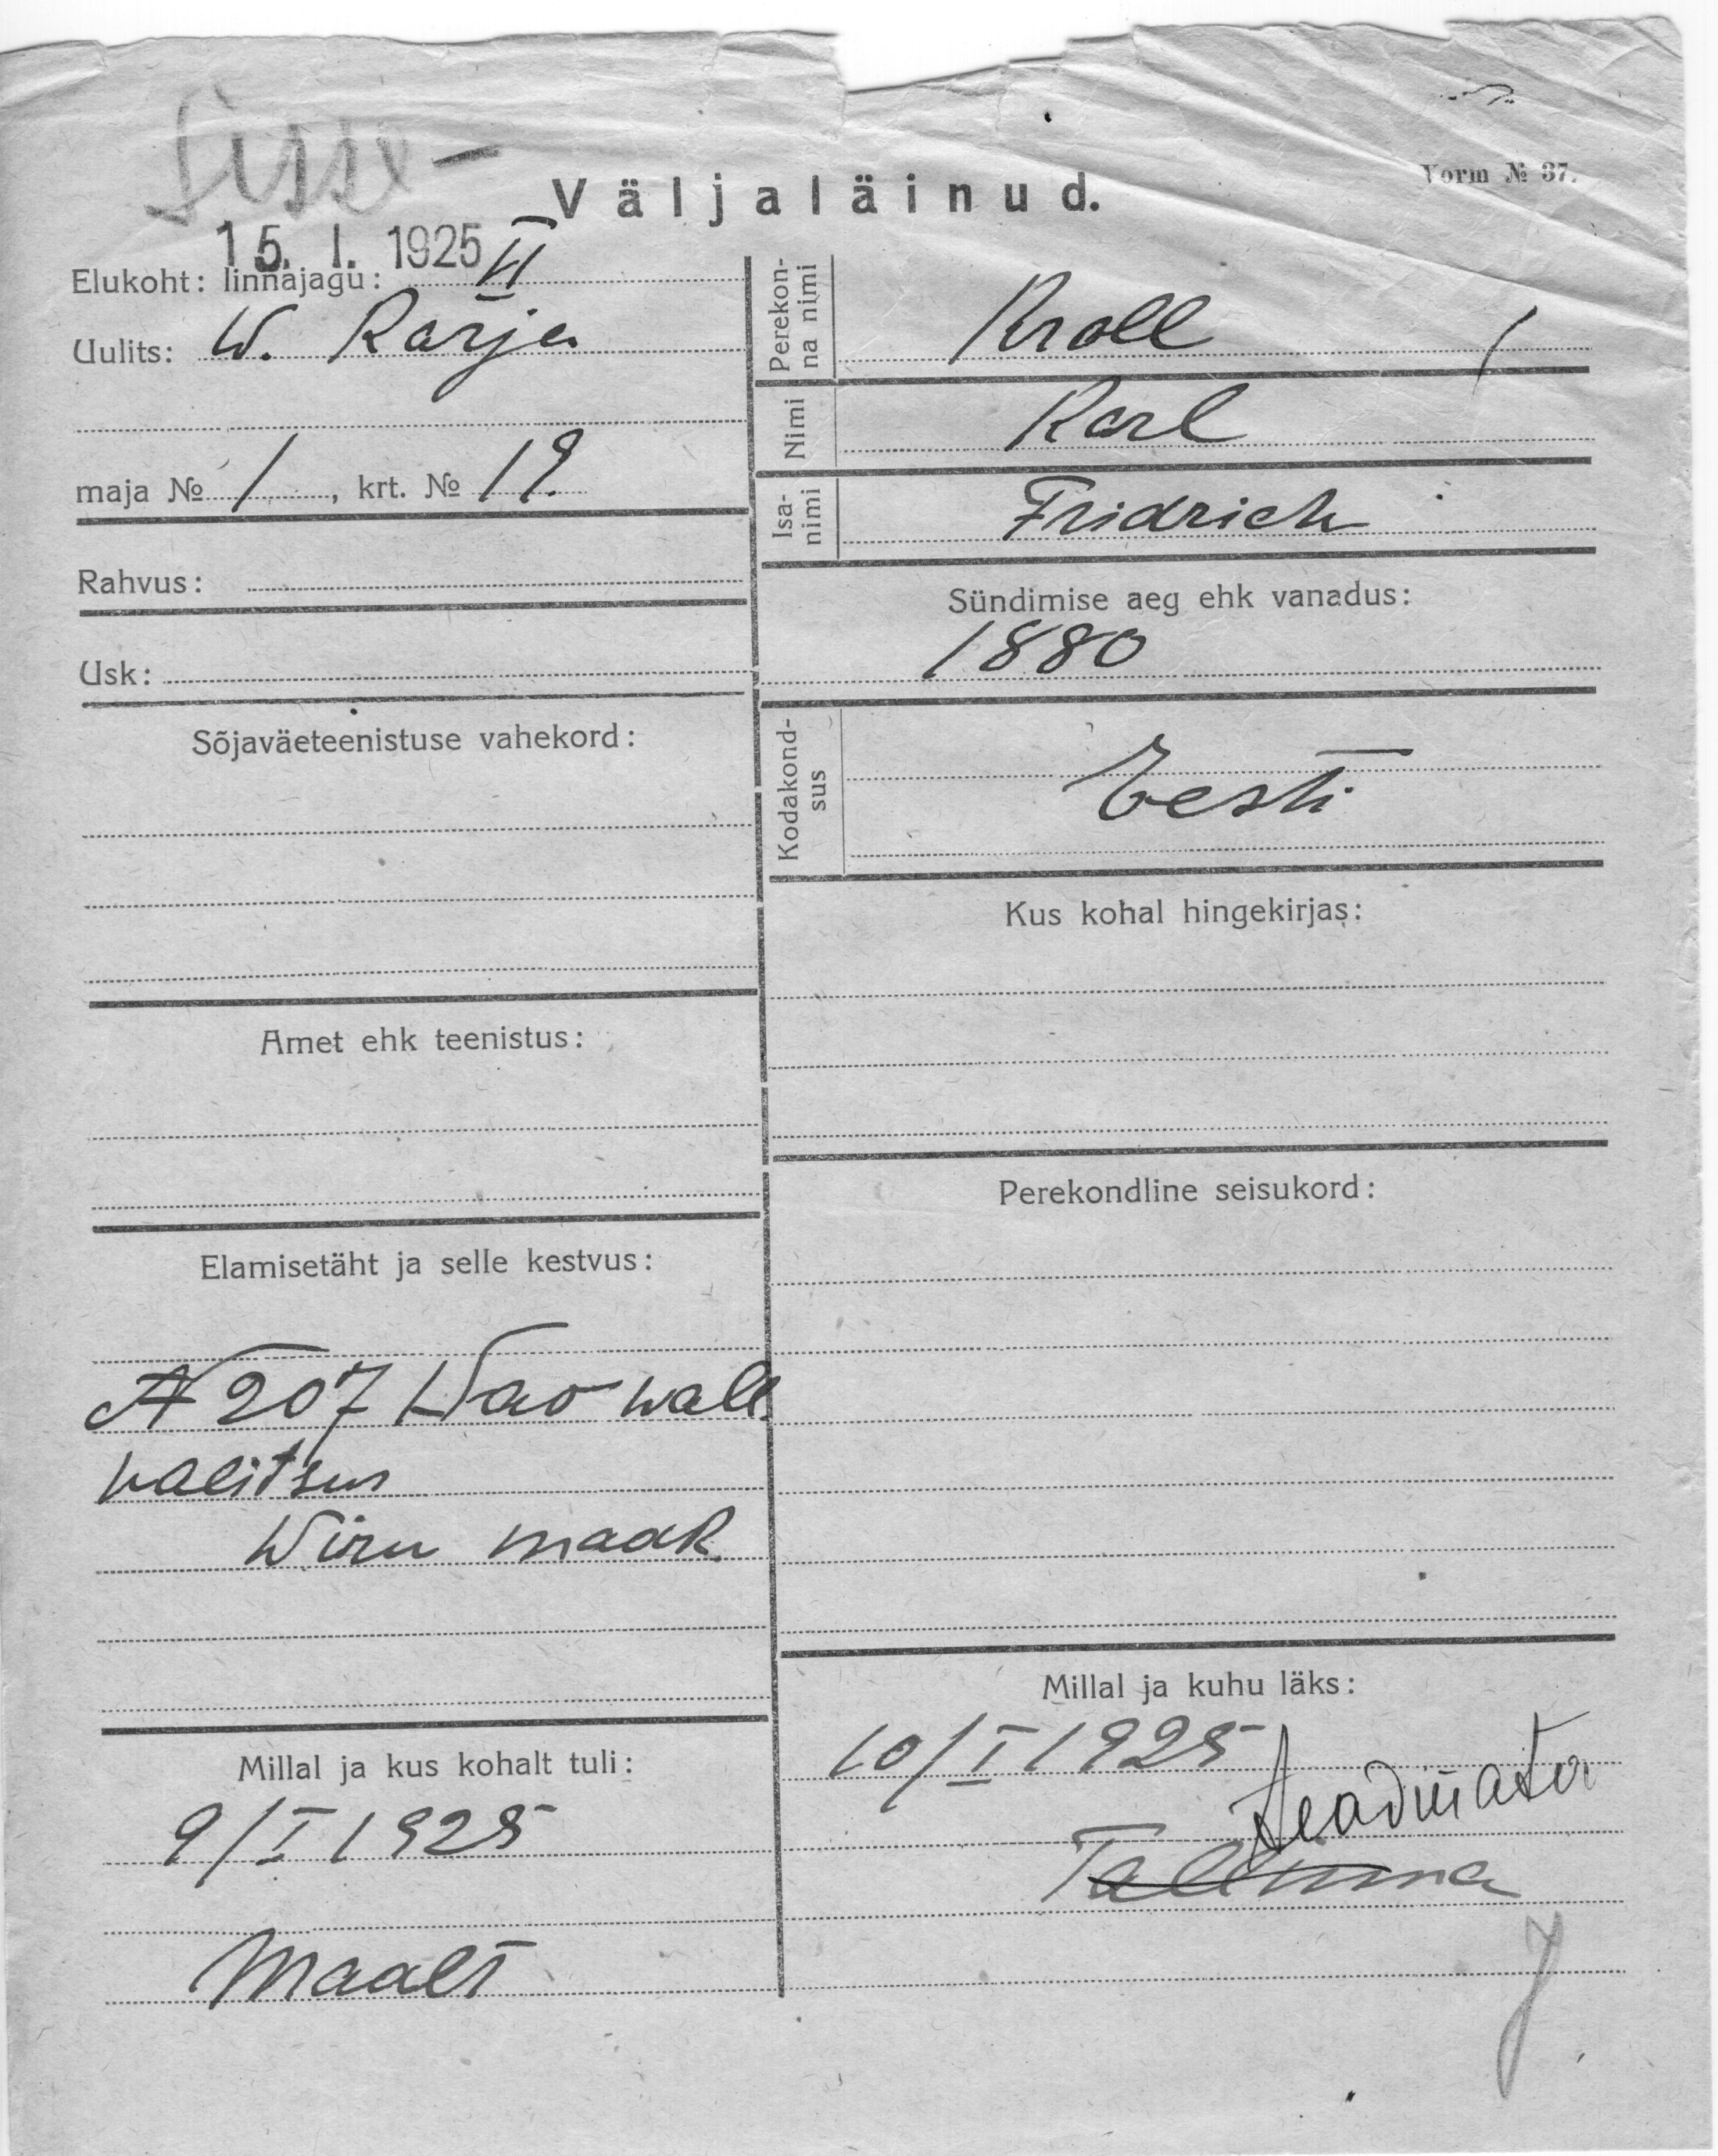 Sisse-
Vorm № 37.
Väljaläinud.
15. I. 1925
Elukoht: linnajagu: VI
Uulits: W. Karja
maja № 1, krt. № 19.
Rahvus:
Usk:
Sõjaväeteenistuse vahekord:
Amet ehk teenistus:
Elamisetäht ja selle kestvus:
№ 207 Wao wall.
walitsus
Wiru maak.
Millal ja kus kohalt tuli:
9/I 1925
Maalt
Perekon-
na nimi
Kroll
Nimi
Karl
Isa-
nimi
Fridrich
Sündimise aeg ehk vanadus:
1880
Kodakond-
sus
Eesti
Kus kohal hingekirjas:
Perekondline seisukord:
Millal ja kuhu läks:
10/I 1925
teadmata
Tallinna